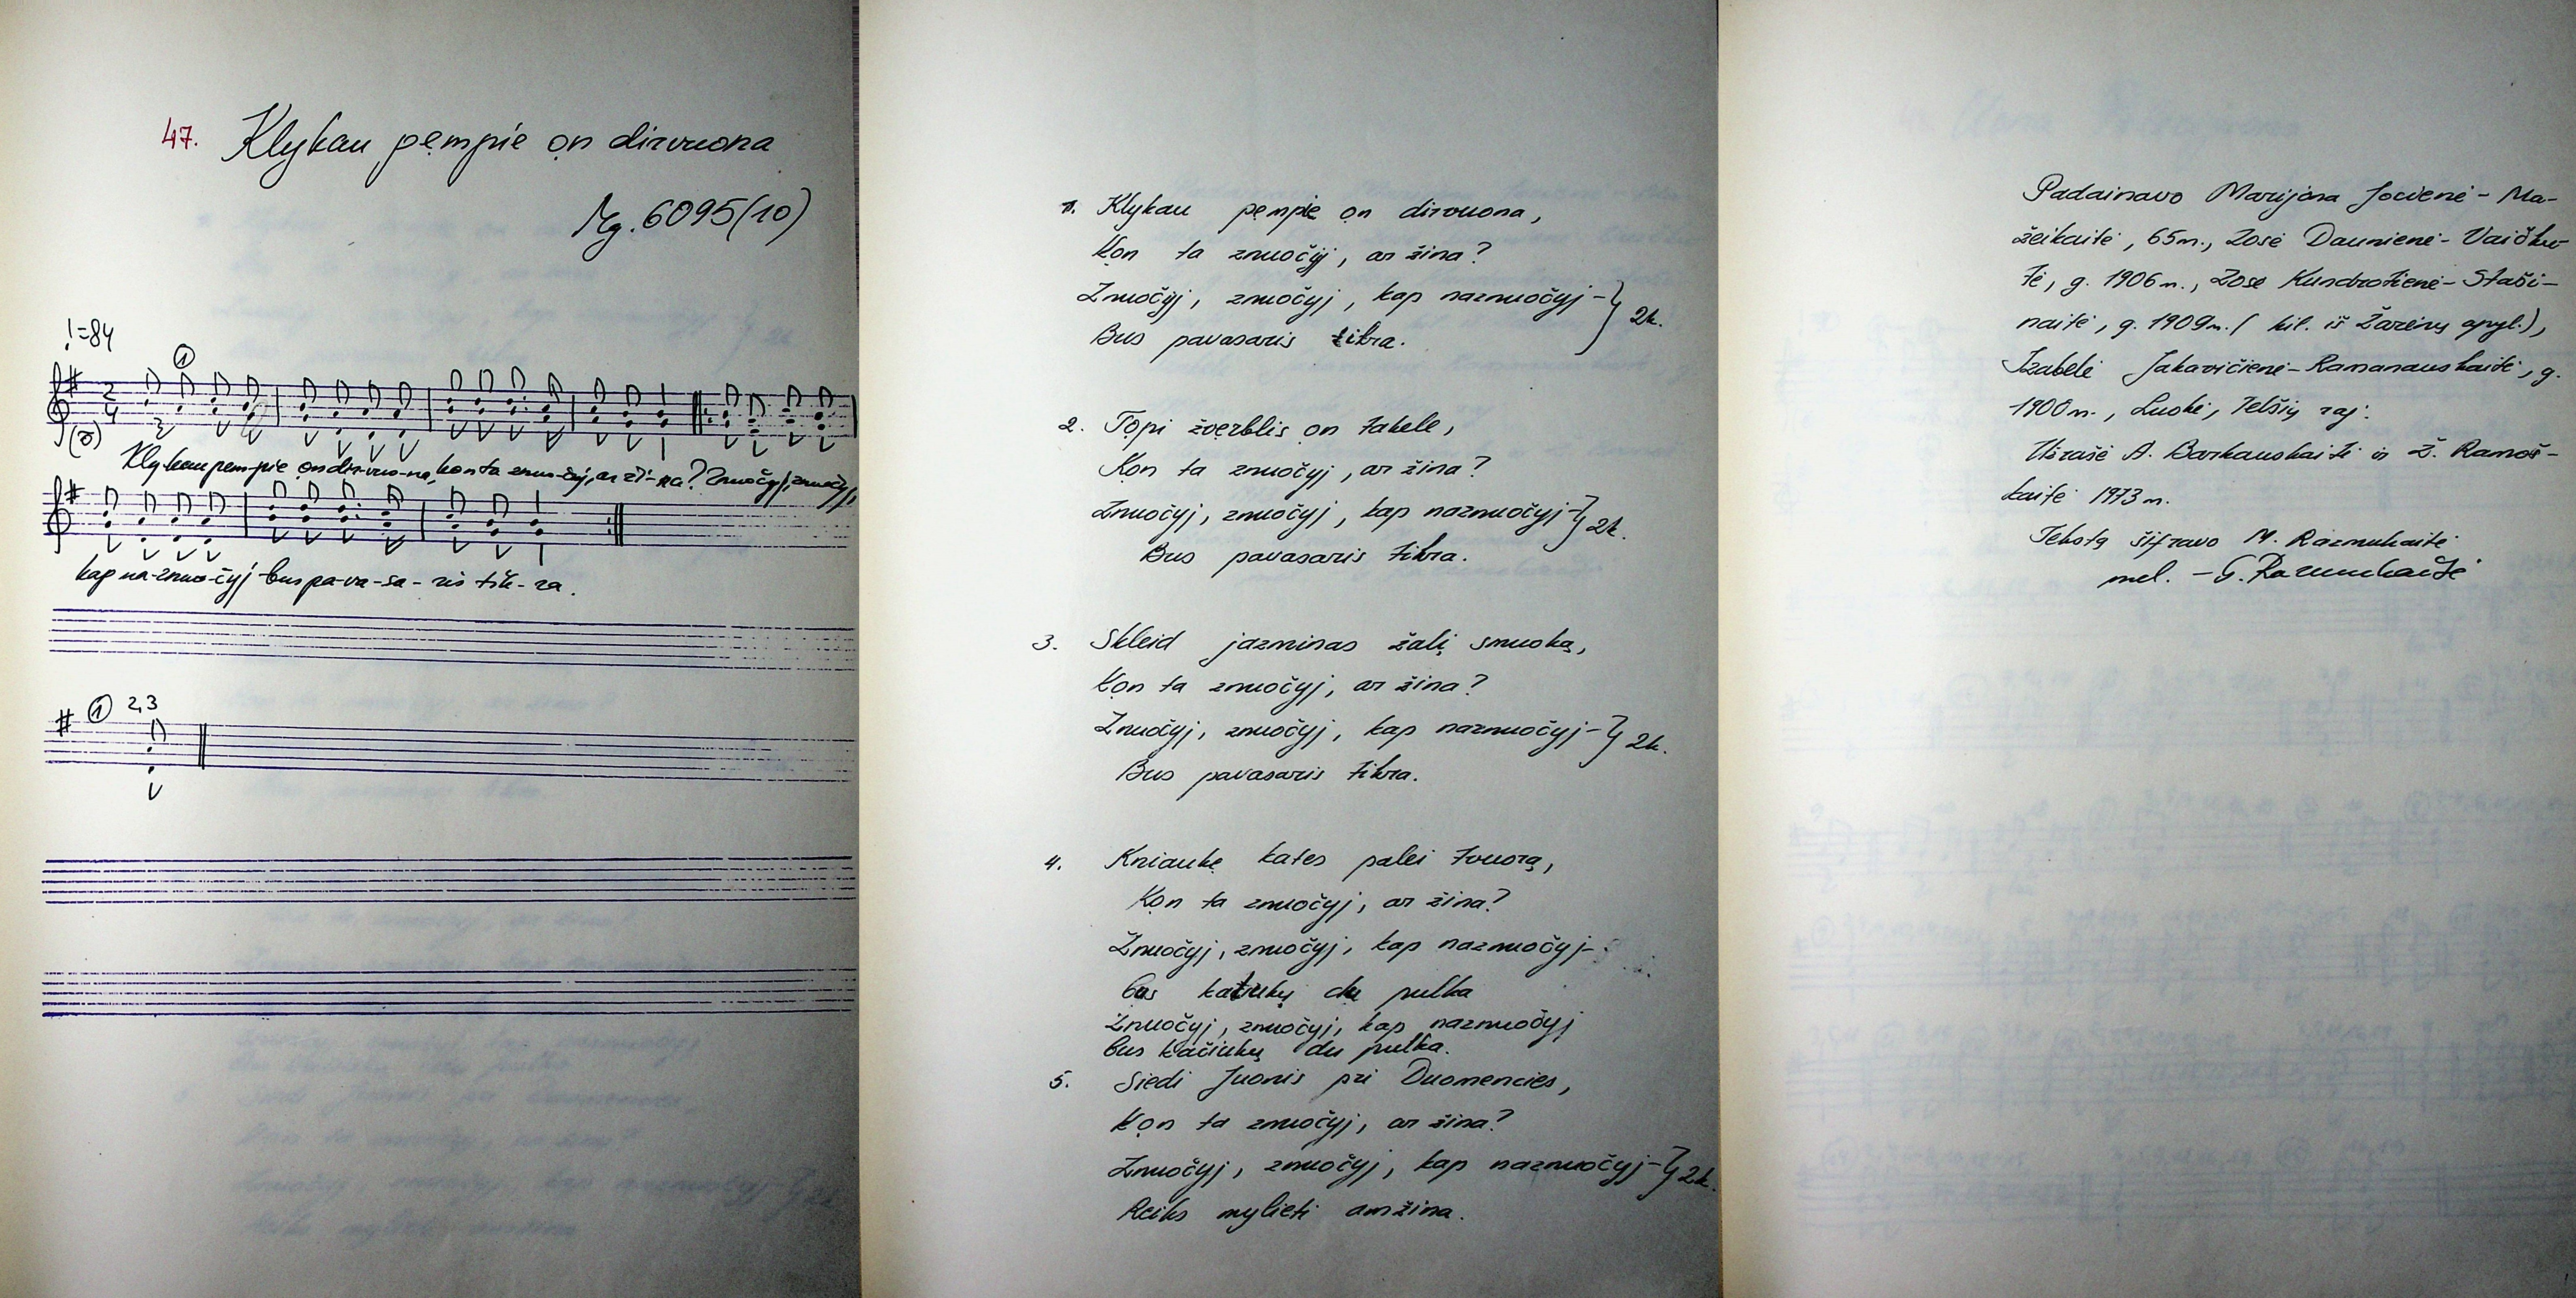 47. Klykau pempie on dirvuona
Mg. 6095(10)
!=84
①
2
4
(8)
Klykau pem-pie on dir-vuo-na, kon ta znuo-čyj, ar ži-na? Znuočyj, znuočyj,
kap na-znuo-čyj - bus pa-va-sa-ris tik-ra.
① 2,3
1. Klykau pempie on dirvuona,
Kon ta znuočyj, ar žina?
Znuočyj, znuočyj, kap naznuočyj - } 2k.
Bus pavasaris tikra.
2. Topi žverblis on takele,
Kon ta znuočyj, ar žina?
Znuočyj, znuočyj, kap naznuočyj - } 2k.
Bus pavasaris tikra.
3. Skleid jazminas žalį smuoką,
Kon ta znuočyj, ar žina?
Znuočyj, znuočyj, kap naznuočyj - } 2k.
Bus pavasaris tikra.
4. Kniaukę kates palei tvuorą,
Kon ta znuočyj, ar žina?
Žnuočyj, znuočyj, kap naznuočyj -
bus katiukų du pulka
Znuočyj, znuočyj, kap naznuočyj
bus kačiukų du pulka.
5. Siedi Juonis pri Duomencies,
Kon ta znuočyj, ar žina?
Znuočyj, znuočyj, kap naznuočyj - } 2k.
Reiks mylieti amžina.
Padainavo Marijona Jocienė - Ma-
žeikaitė, 65m., Zosė Daunienė - Vaičku-
tė, g. 1906m., Zosė Kundrotienė - Staši-
naitė, g. 1909m. ( kil. iš Žarėnų apyl.),
Izabelė Jakavičienė - Ramanauskaitė, g.
1900m., Luokė, Telšių raj.
Užrašė A. Barkauskaitė ir Ž. Ramoš-
kaitė 1973m.
Tekstą šifravo M. Razmukaitė
mel. - G. Razmukaitė